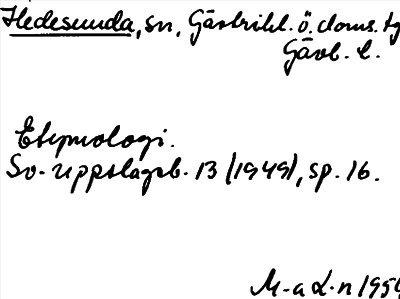 Hedesunda, sn, Gästrikl. ö. doms. tg
Gävl. l.
Etymologi.
Sv. Uppslagsb. 13 (1949), sp. 16.
M-a L-n 1959